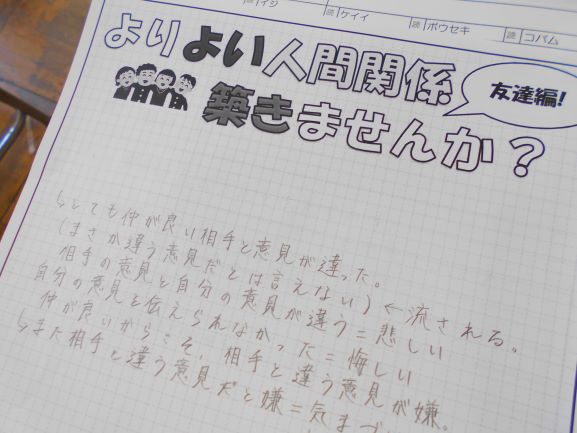 イジ
読 ケイイ
読 ボウセキ
読 コバム
よりよい人間関係
友達編!
築きませんか?
↳とても仲が良い相手と意見が違った。
(まさか違う意見だとは言えない)←流される。
相手の意見と自分の意見が違う=悲しい
自分の意見を伝えられなかった=悔しい
仲が良いからこそ、相手と違う意見が嫌。
↳また相手と違う意見だと嫌=気まづ